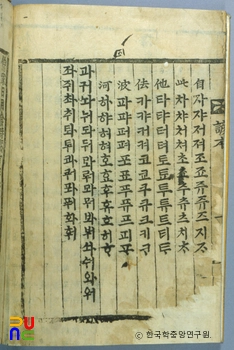 諺本
自자쟈저져조죠주쥬즈지ᄌᆞ
此차챠처쳐초쵸추츄츠치ᄎᆞ
他타탸터텨토툐투튜트티ᄐᆞ
佉카캬커켜코쿄쿠큐크키ᄏᆞ
波파퍄퍼펴포표푸퓨프피ᄑᆞ
河하햐허혀호효후휴흐히ᄒᆞ
과궈놔눠돠둬롸뤄뫄뭐봐붜솨숴와워
좌줘촤춰톼퉈콰쿼퐈풔화훠
ⓒ 한국학중앙연구원